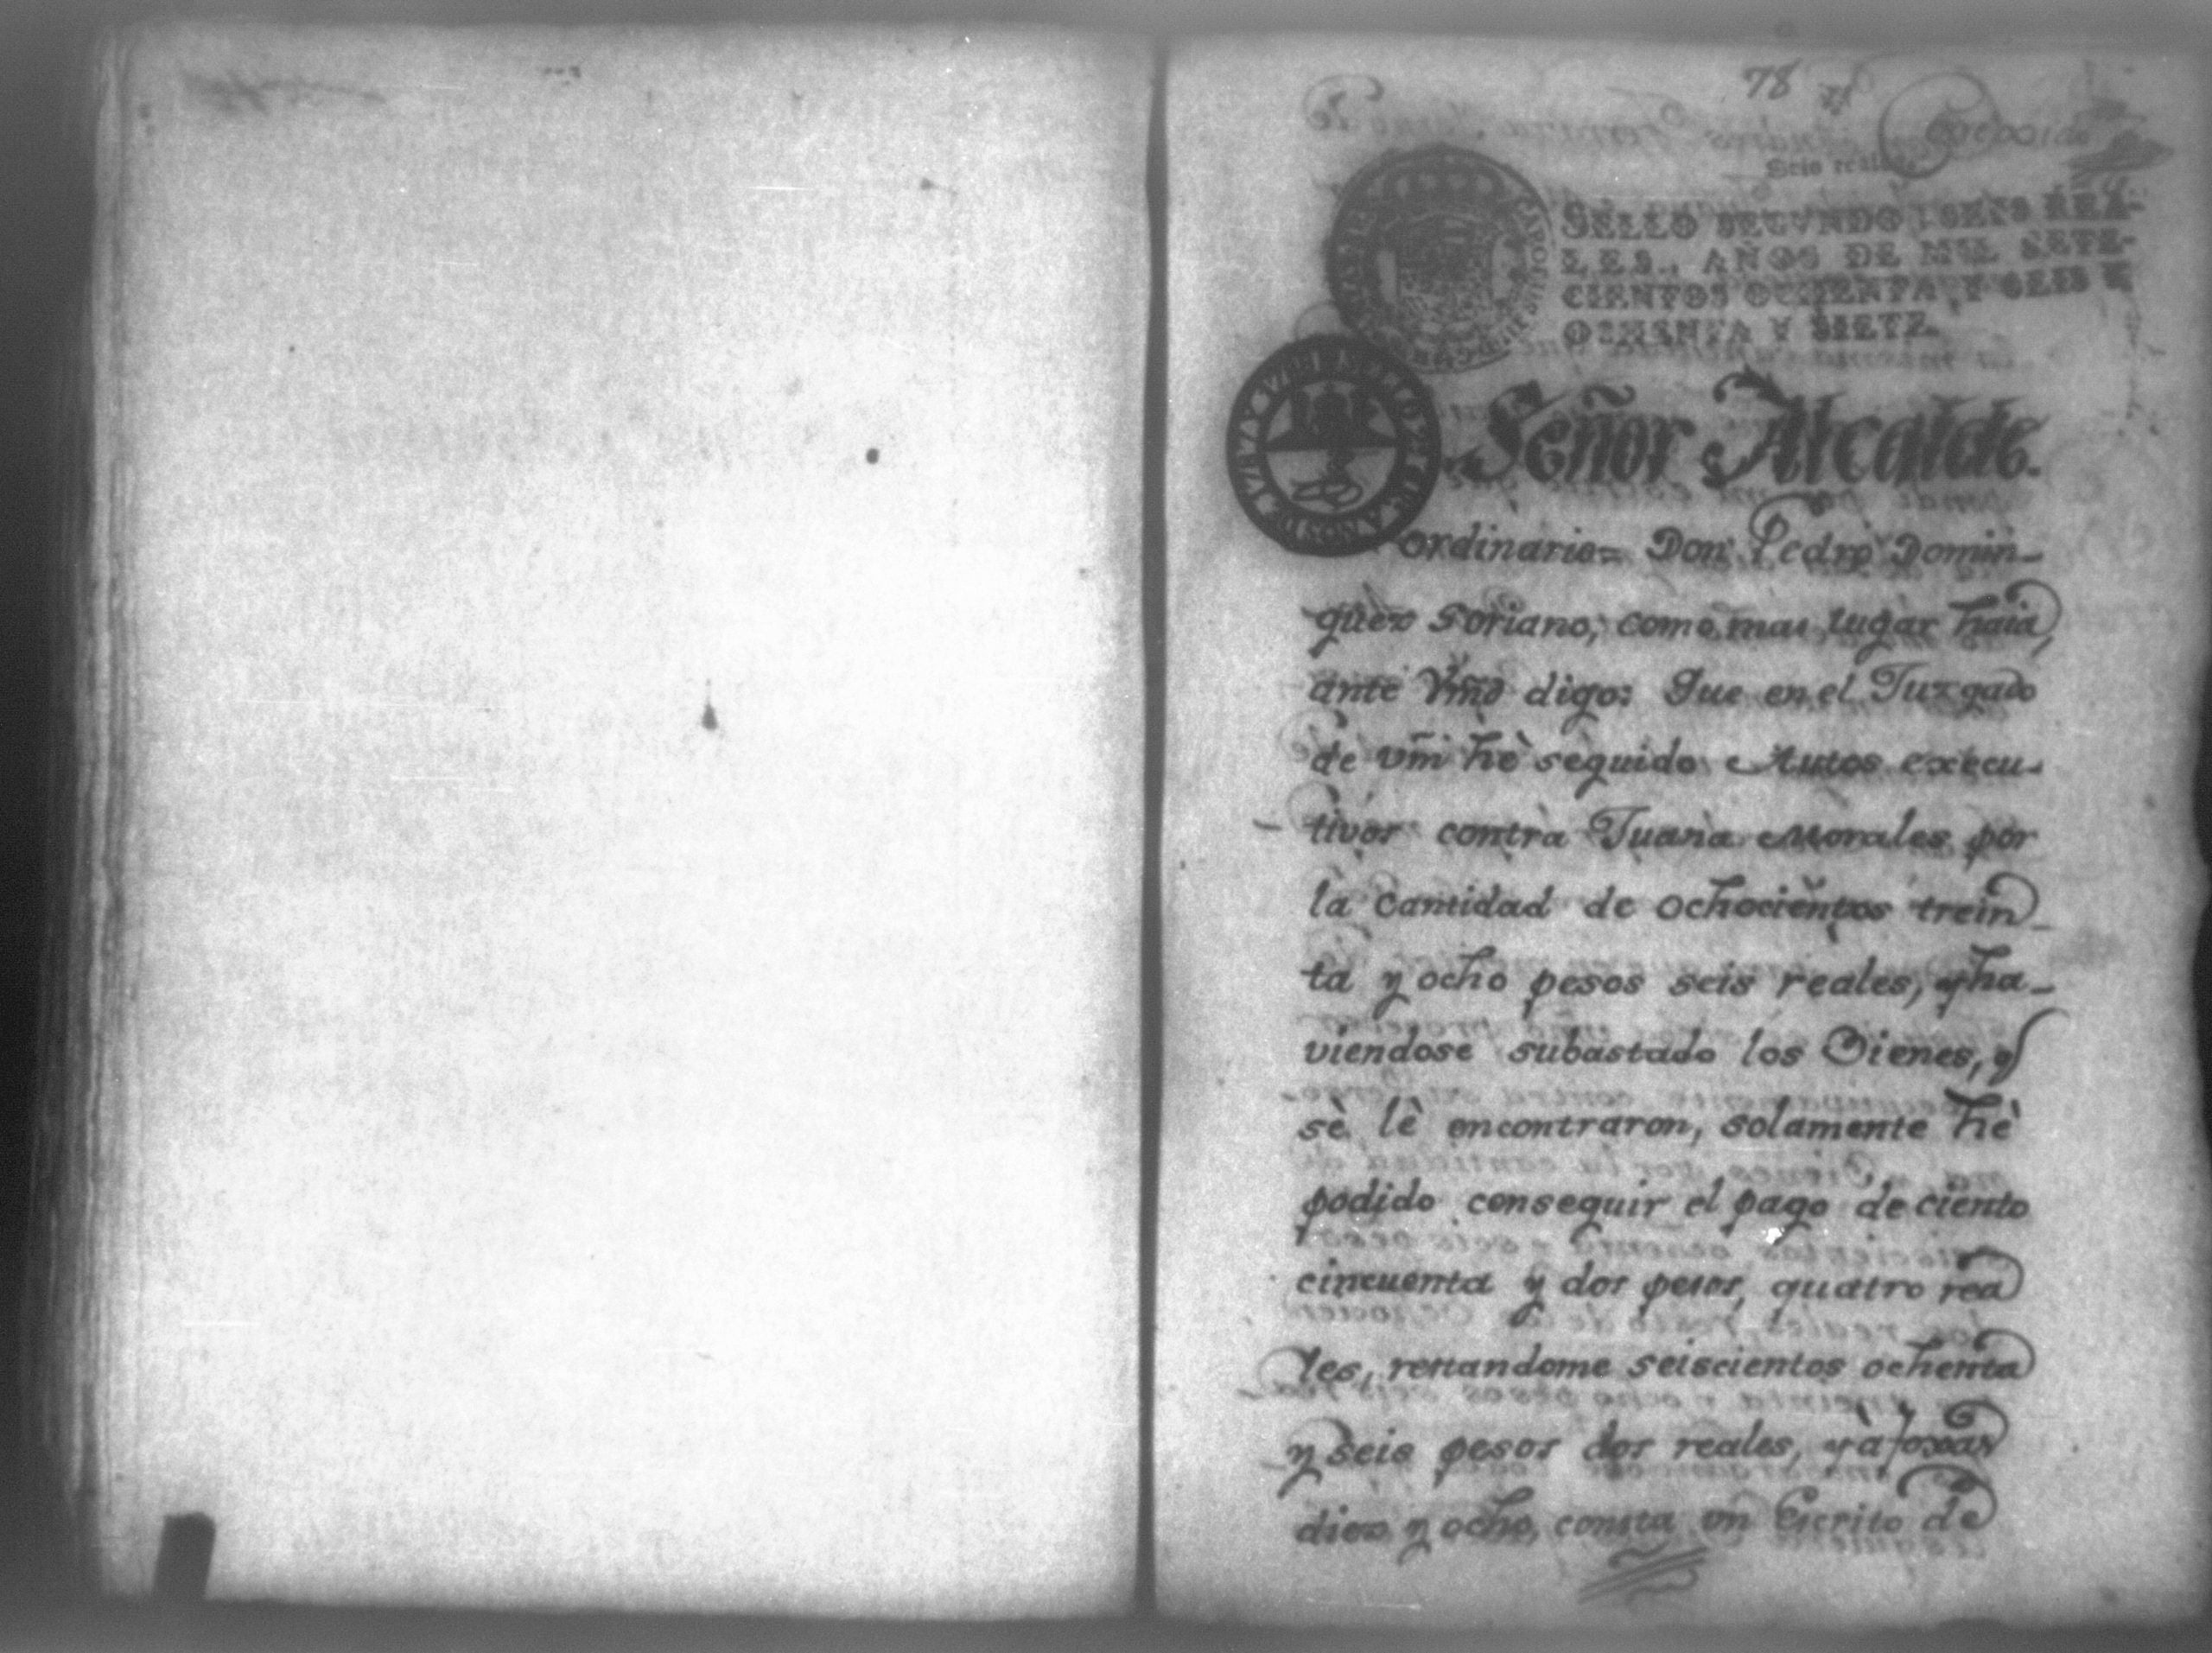 78
Seis reales
SELLO SEGVNDO, SEIS REA-
LES, AÑOS DE MIL SETE-
CIENTOS OCHENTA Y SEIS Y
OCHENTA Y SIETE.
Señor Alcalde.
ordinario= Don Pedro Domin-
guez Soriano, como mas lugar haia,
ante Vmd digo: Que en el Juzgado
de vm̃ hè seguido Autos execu-
tivos contra Juana Morales por
la cantidad de ochocientos trein-
ta y ocho pesos seis reales, y ha-
viendose subastado los Bienes, q̃
sè lè encontraron, solamente hè
podido conseguir el pago de ciento
cincuenta y dos pesos, quatro rea
les, restandome seiscientos ochenta
y seis pesos dos reales, y à foxas
diez y ocho, consta un Escrito de